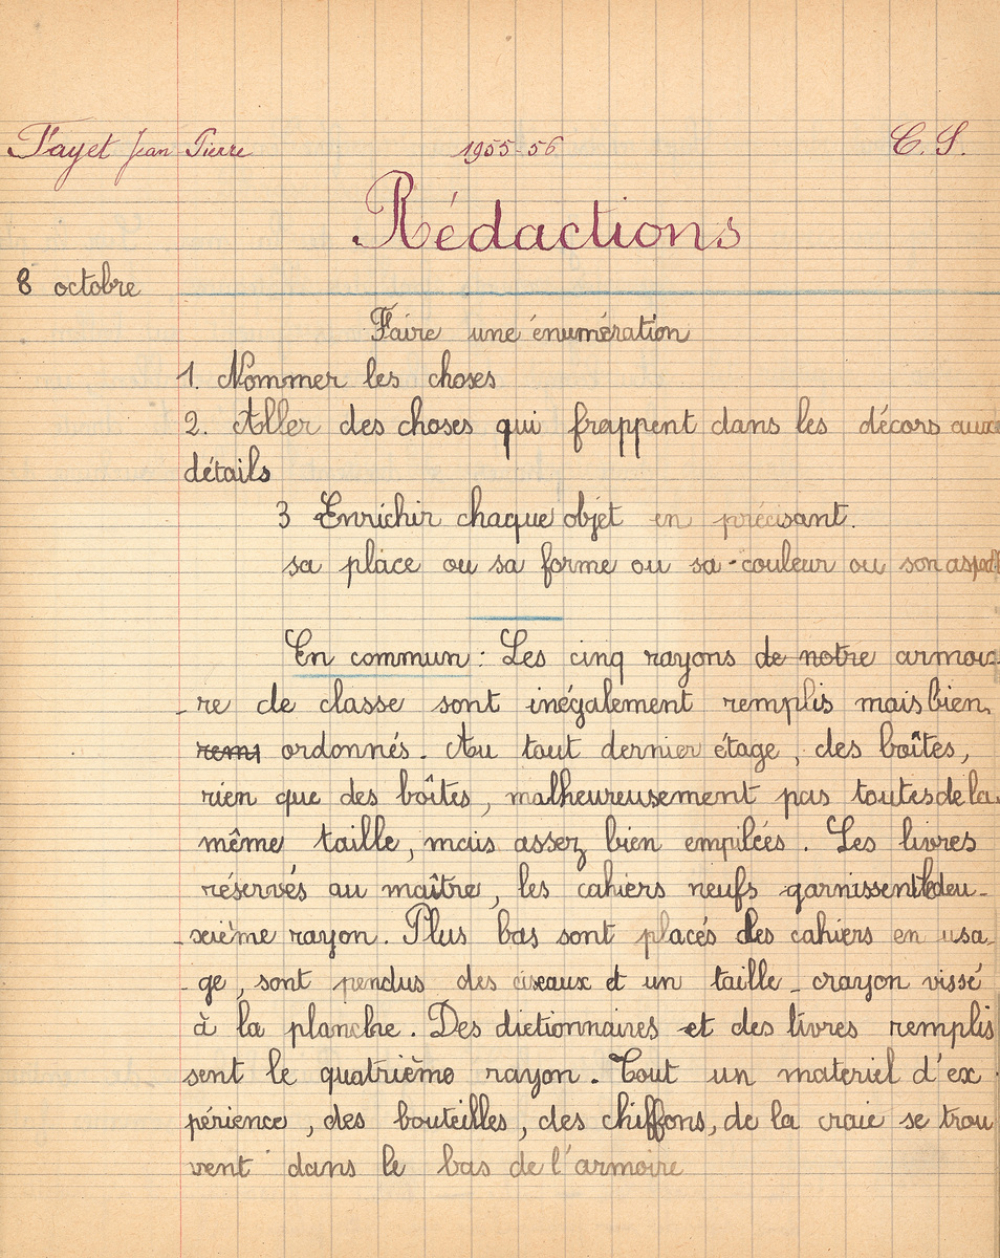 Fayet Jean Pierre 1955-56 C. S.
Rédactions
8 octobre
Faire une énumération
1. Nommer les choses
2. Aller des choses qui frappent dans les décors aux
détails
3 Enrichir chaque objet en précisant.
sa place ou sa forme ou sa couleur ou son aspect
En commun : Les cinq rayons de notre armoi-
-re de classe sont inégalement remplis mais bien
rem ordonnés. Au tout dernier étage, des boîtes,
rien que des boîtes, malheureusement pas toutes de la
même taille, mais assez bien empilées. Les livres
réservés au maître, les cahiers neufs garnissent le deu-
-xième rayon. Plus bas sont placés des cahiers en usa-
-ge, sont pendus des ciseaux et un taille-crayon vissé
à la planche. Des dictionnaires et des livres remplis
sent le quatrième rayon. Tout un materiel d'ex
périence, des bouteilles, des chiffons, de la craie se trou
vent dans le bas de l'armoire